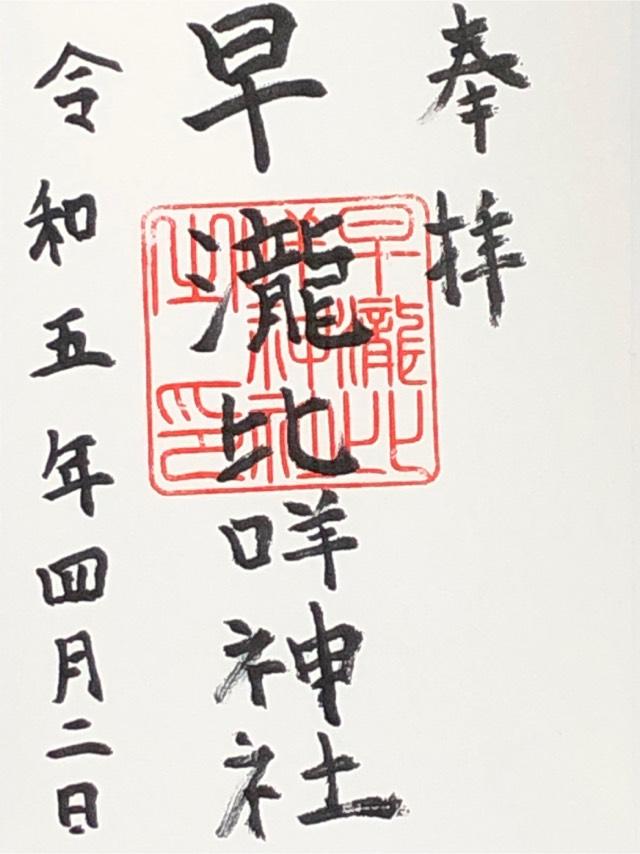 奉拝
早瀧比咩神社
令和五年四月二日
早瀧比
咩神社
之印